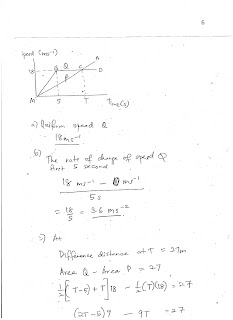 speed (ms⁻¹)
A
18 B Q C D
P
M 5 T Time(s)
a) Uniform speed Q
18 ms⁻¹
(b) The rate of change of speed Q
first 5 second
18 ms⁻¹ - 0 ms⁻¹
5 s
= 18/5 = 3.6 ms⁻²
c) At
Difference distance at T = 27m
Area Q - Area P = 27
1/2 [(T-5)+T] 18 - 1/2 (T)(18) = 27
(2T-5) 9 - 9T = 27